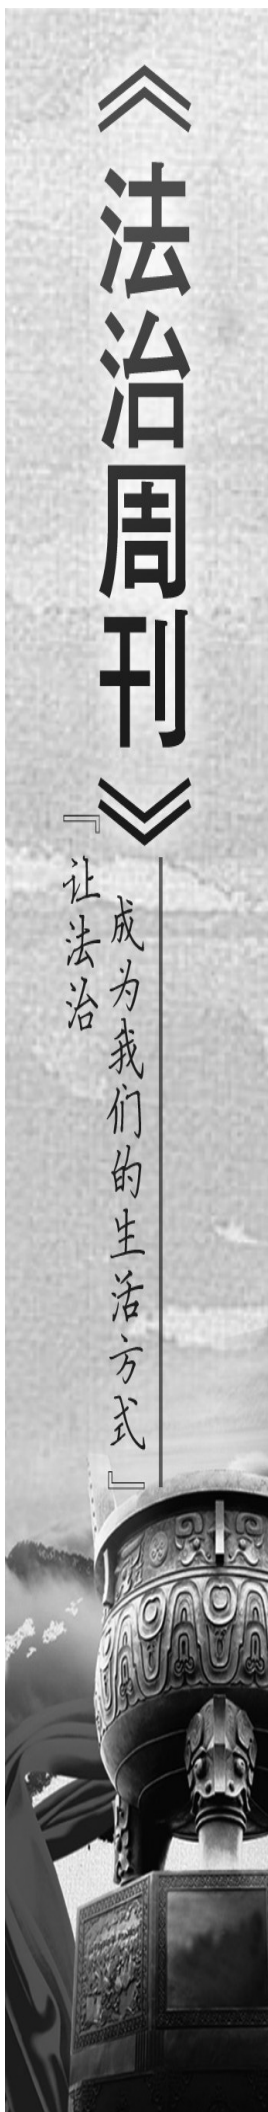 《法治周刊》
『让法治
成为我们的生活方式』